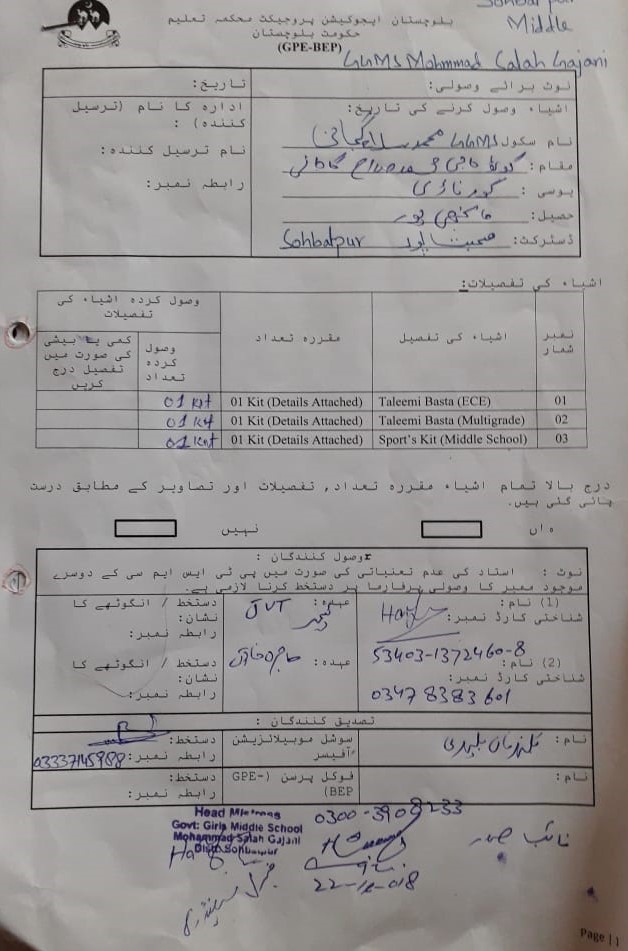 Sohbatpur
Middle
بلوچستان ایجوکیشن پروجیکٹ محکمہ تعلیم
حکومت بلوچستان
(GPE-BEP)
GGMS Mohmmad Salah Gajani
نوٹ برائے وصولی:
تاریخ:
اشیاء وصول کرنے کی تاریخ:
ادارہ کا نام (ترسیل کنندہ) :
نام سکول GGMS محمد صلاح گاجانی
نام ترسیل کنندہ:
مقام:
رابطہ نمبر:
یوسی :
حصیل:
ڈسٹرکٹ: صحبت پور Sohbatpur
اشیاء کی تفصیلات:
نمبر شمار
اشیاء کی تفصیل
مقررہ تعداد
وصول کردہ اشیاء کی تفصیلات
وصول کردہ تعداد
کمی یا بیشی کی صورت میں تفصیل درج کریں
01 Taleemi Basta (ECE) 01 Kit (Details Attached) 01 Kit
02 Taleemi Basta (Multigrade) 01 Kit (Details Attached) 01 Kit
03 Sport's Kit (Middle School) 01 Kit (Details Attached) 01 Kit
درج بالا تمام اشیاء مقررہ تعداد, تفصیلات اور تصاویر کے مطابق درست
پائی گئی ہیں۔
ہاں
نہیں
وصول کنندگان :
نوٹ : استاد کی عدم تعیناتی کی صورت میں پی ٹی ایس ایم سی کے دوسرے
موجود ممبر کا وصولی پرفارما پر دستخط کرنا لازمی ہے۔
(1) نام:
عہدہ: JVT ٹیچر
دستخط / انگوٹھے کا نشان:
شناختی کارڈ نمبر:
رابطہ نمبر:
53403-1372460-8
(2) نام:
عہدہ:
دستخط / انگوٹھے کا نشان:
شناختی کارڈ نمبر:
رابطہ نمبر:
0347 8383601
تصدیق کنندگان :
نام:
سوشل موبیلائزیشن آفیسر
دستخط:
رابطہ نمبر: 03337145988
نام:
فوکل پرسن (GPE-BEP)
دستخط:
رابطہ نمبر:
0300-3908233
Head Mistress
Govt: Girls Middle School
Mohammad Salah Gajani
Distt Sohbatpur
نائب صدر
جنرل سیکریٹری
Page | 1